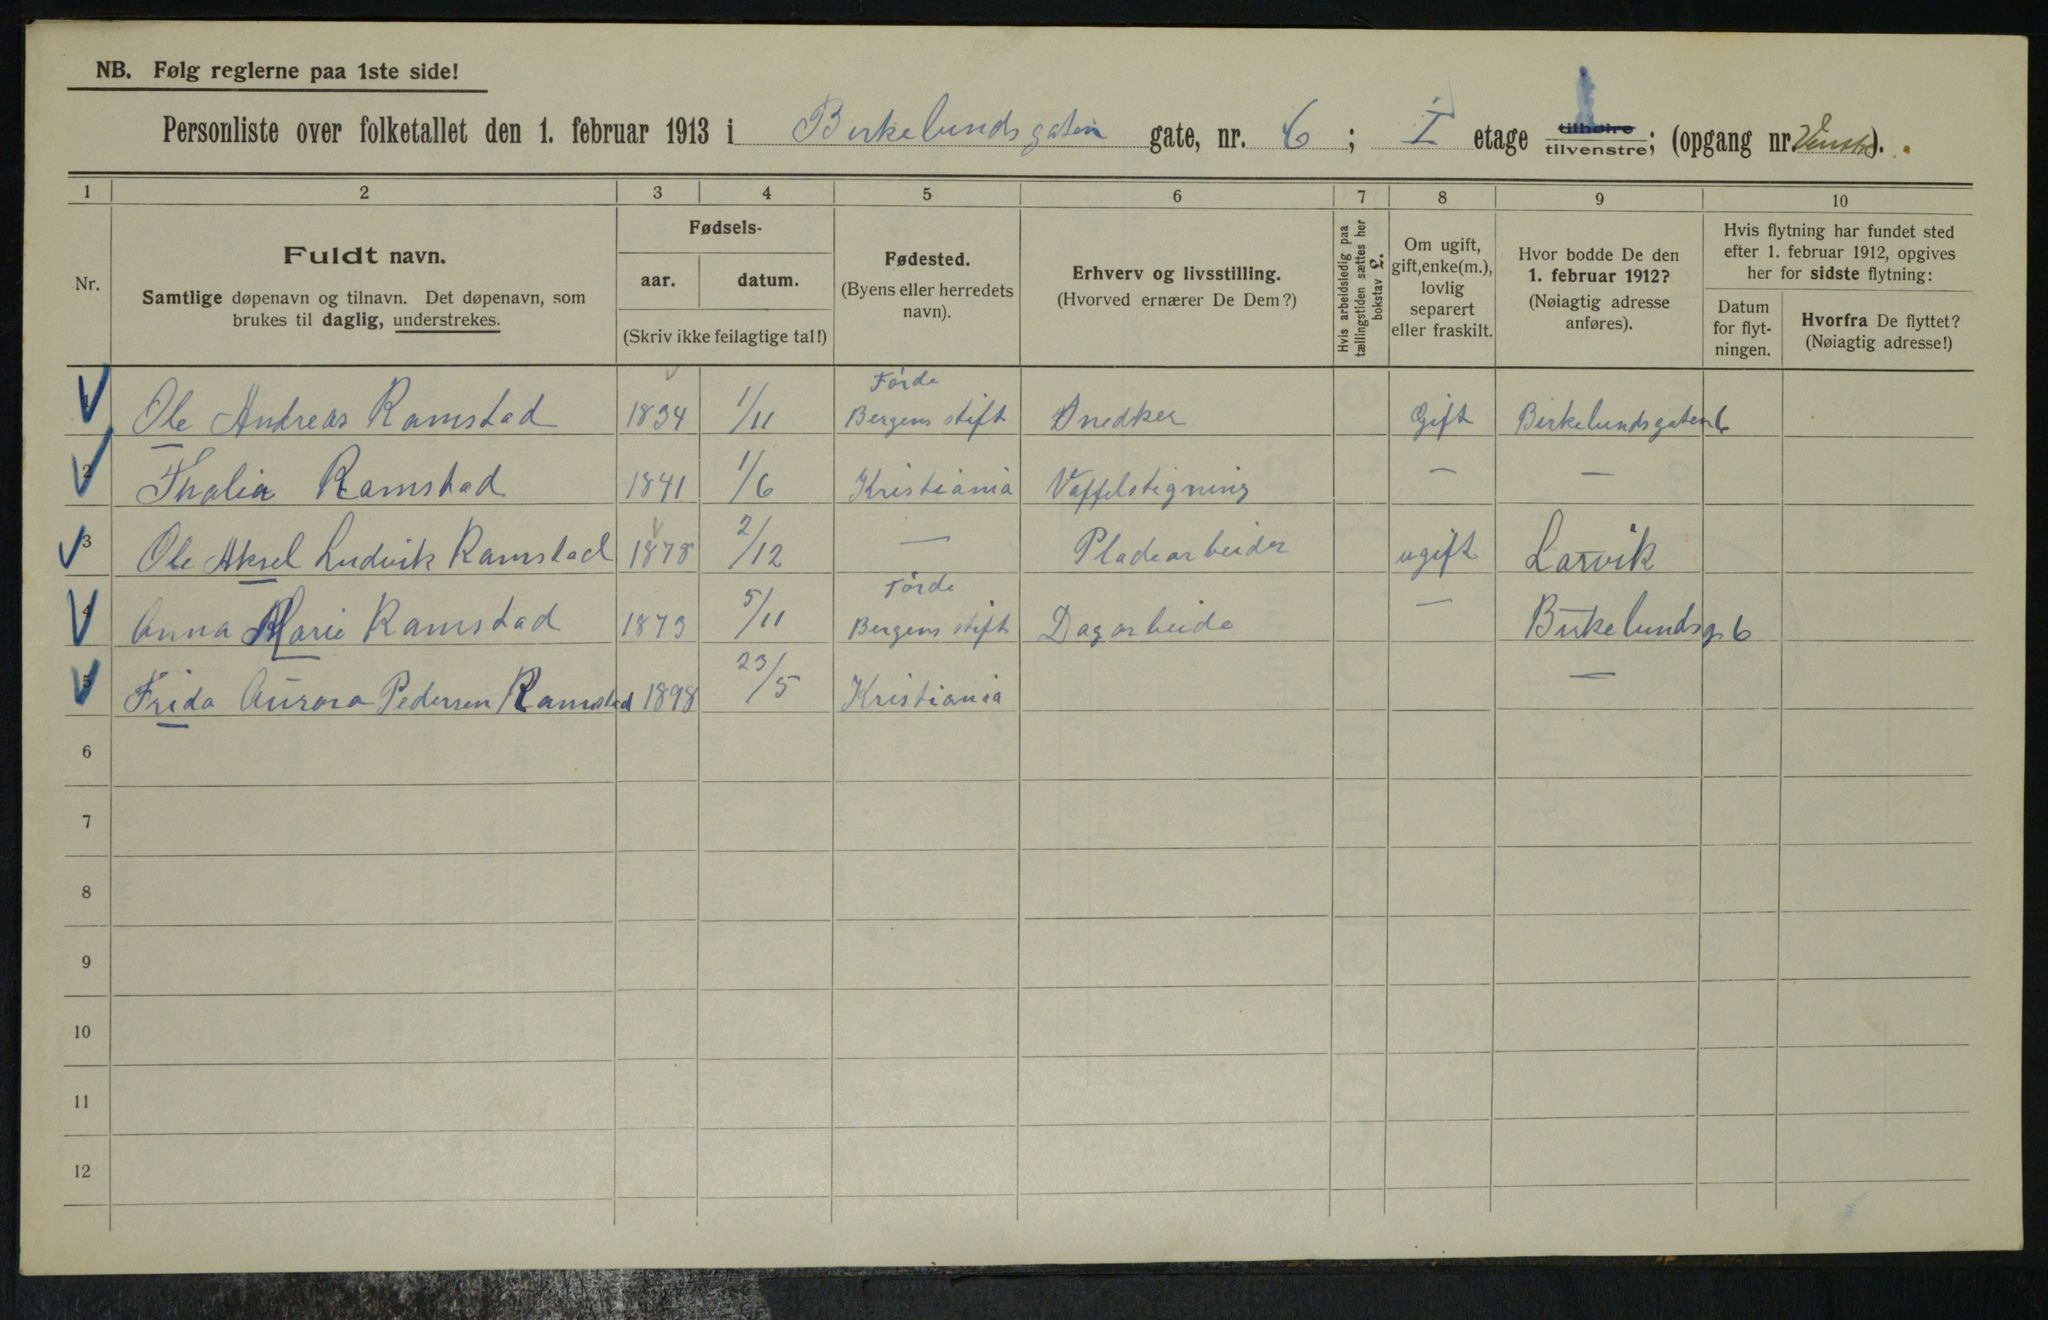 NB. Følg reglerne paa 1ste side!
Personliste over folketallet den 1. februar 1913 i Birkelundsgaten gate, nr. 6; I etage tilhøire tilvenstre; (opgang nr. Venstre).
1 2 3 4 5 6 7 8 9 10
Nr.
Fuldt navn.
Samtlige døpenavn og tilnavn. Det døpenavn, som
brukes til daglig, understrekes.
Fødsels-
aar. datum.
(Skriv ikke feilagtige tal!)
Fødested.
(Byens eller herredets
navn).
Erhverv og livsstilling.
(Hvorved ernærer De Dem?)
Hvis arbeidsledig paa
tællingstiden sættes her
bokstav L.
Om ugift,
gift, enke(m.),
lovlig
separert
eller fraskilt.
Hvor bodde De den
1. februar 1912?
(Nøiagtig adresse
anføres).
Hvis flytning har fundet sted
efter 1. februar 1912, opgives
her for sidste flytning:
Datum
for flyt-
ningen.
Hvorfra De flyttet?
(Nøiagtig adresse!)
1 Ole Andreas Ramstad 1834 1/11 Førde Bergens stift Snedker Gift Birkelundsgaten 6
2 Thalia Ramstad 1841 1/6 Kristiania Vaffelstigning — —
3 Ole Aksel Ludvik Ramstad 1878 2/12 — Pladearbeider ugift Larvik
4 Anna Marie Ramstad 1873 5/11 Førde Bergens stift Dagarbeide — Birkelundsg 6
5 Frida Aurora Pedersen Ramstad 1898 23/5 Kristiania —
6
7
8
9
10
11
12